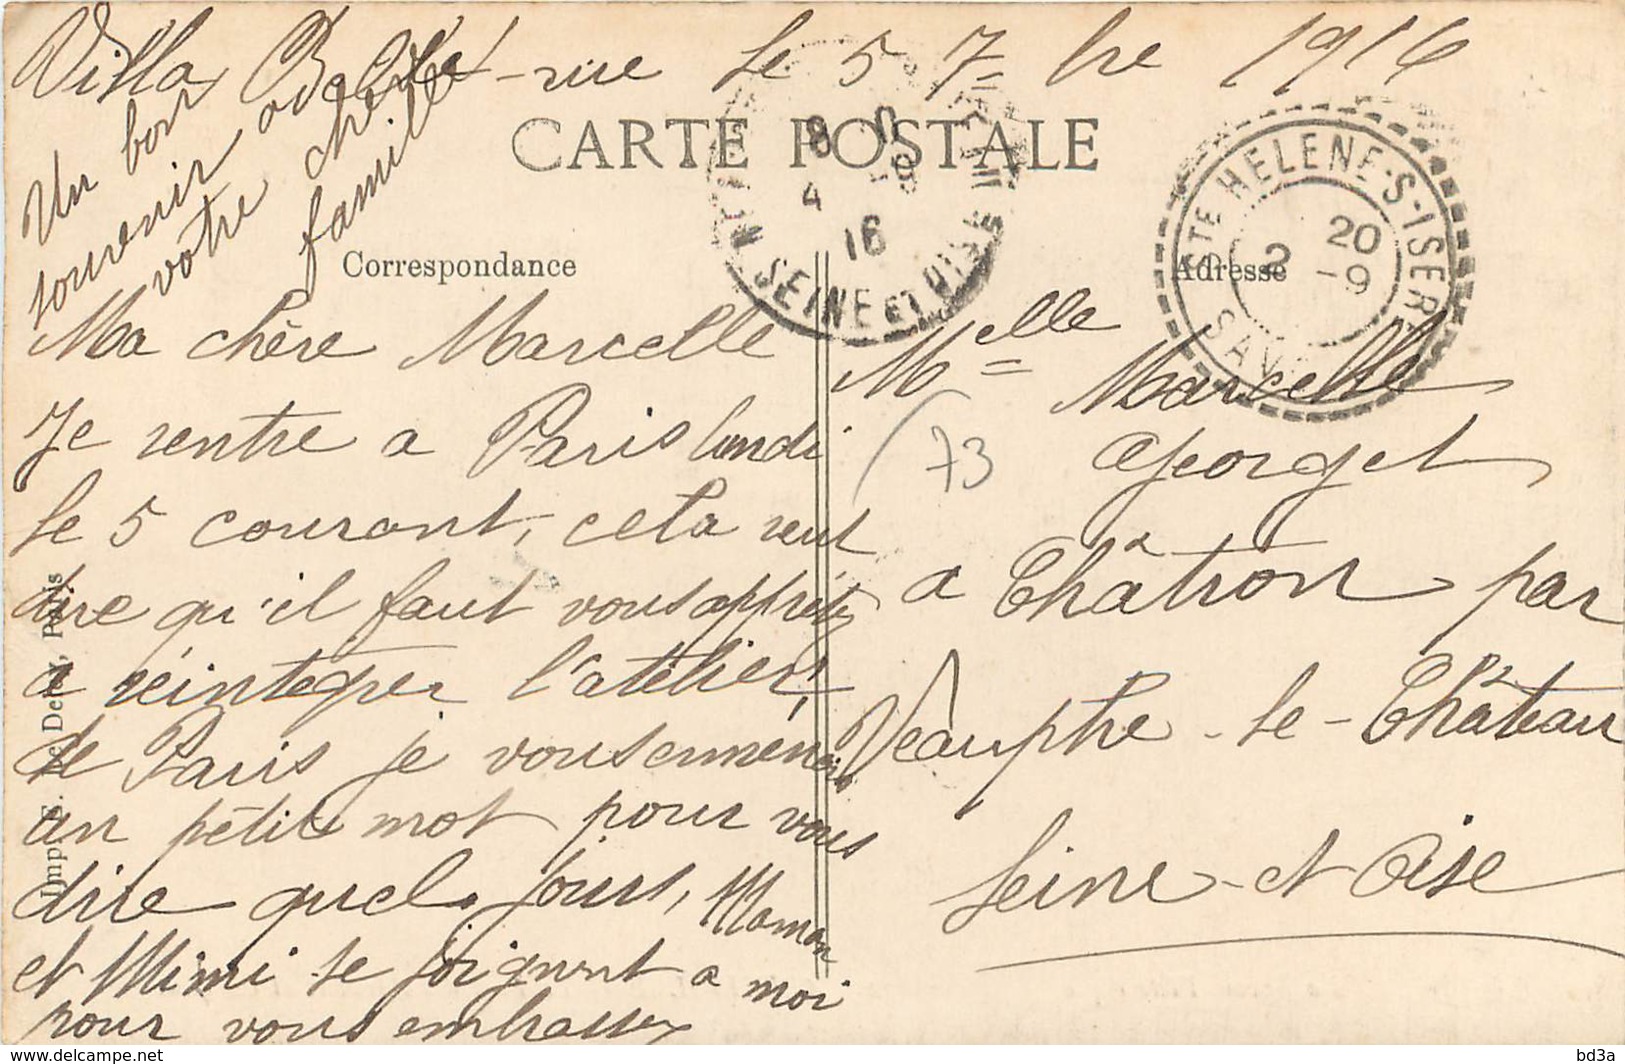 Villa Belle-vue le 5 7bre 1916
Un bon
souvenir a
votre chère
famille
CARTE POSTALE
Correspondance
Adresse
8
4
16
SEINE ET OISE
STE HELENE-S-ISERE
20
2 -9
SAV
Ma chère Marcelle
Je rentre a Paris lundi
le 5 courant, cela veut
dire qu'il faut vous apprêtez
a réintegrer l'atelier,
de Paris je vous
un petit mot pour vous
dire quel jour, Maman
et Mimi se joignent a moi
pour vous embrasser
Melle Marcelle
Georget
73
a Châtron par
Neauphle-le-Château
Seine-et Oise
Imp. E. Le Deley, Paris
bd3a
www.delcampe.net